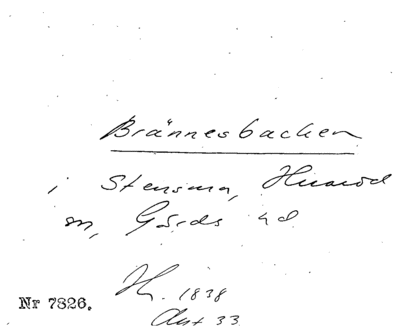 Brännesbacken
i Stensma, Huaröd
sn, Gärds hd
H. 1838
Akt 33
Nr 7826.